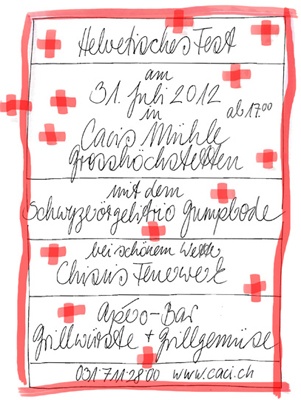 Helvetisches Fest
am
31. Juli 2012
ab 17.00
in
Cacis Mühle
Grosshöchstetten
mit dem
Schwyzerörgelitrio Gumpbode
bei schönem Wetter
Chisus Feuerwerk
Apéro-Bar
Grillwürste + Grillgemüse
031 711 28 00 www.caci.ch